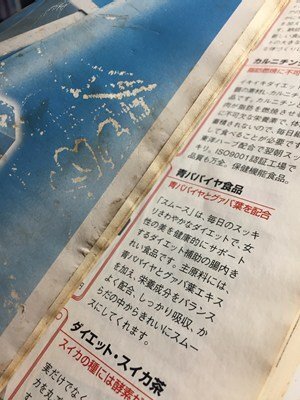 カルニチン
脂肪燃焼に不
酸の素材です。カルニチン
肉が脂肪を燃焼させ
に不可欠な栄養素で、体
蓄積されないので、毎日
して食べることが必要です
東洋ハーブ配合で翌朝ス
キリ。ISO9001認証工場で
品質も万全。保健機能食品。
青パパイヤ食品
青パパイヤとグァバ葉を配合
「スムース」は、毎日のスッキ
リさわやかなダイエットで、女
性の美を健康的にサポート
するダイエット補助の腸内き
れい食品です。主原料には、
青パパイヤとグァバ葉エキス
を加え、栄養成分をバランス
よく配合、しっかり吸収、か
らだの中からきれいにスムー
スにしてくれます。
ダイエット・スイカ茶
スイカの種には酵素が
実だけでなく
力を丸